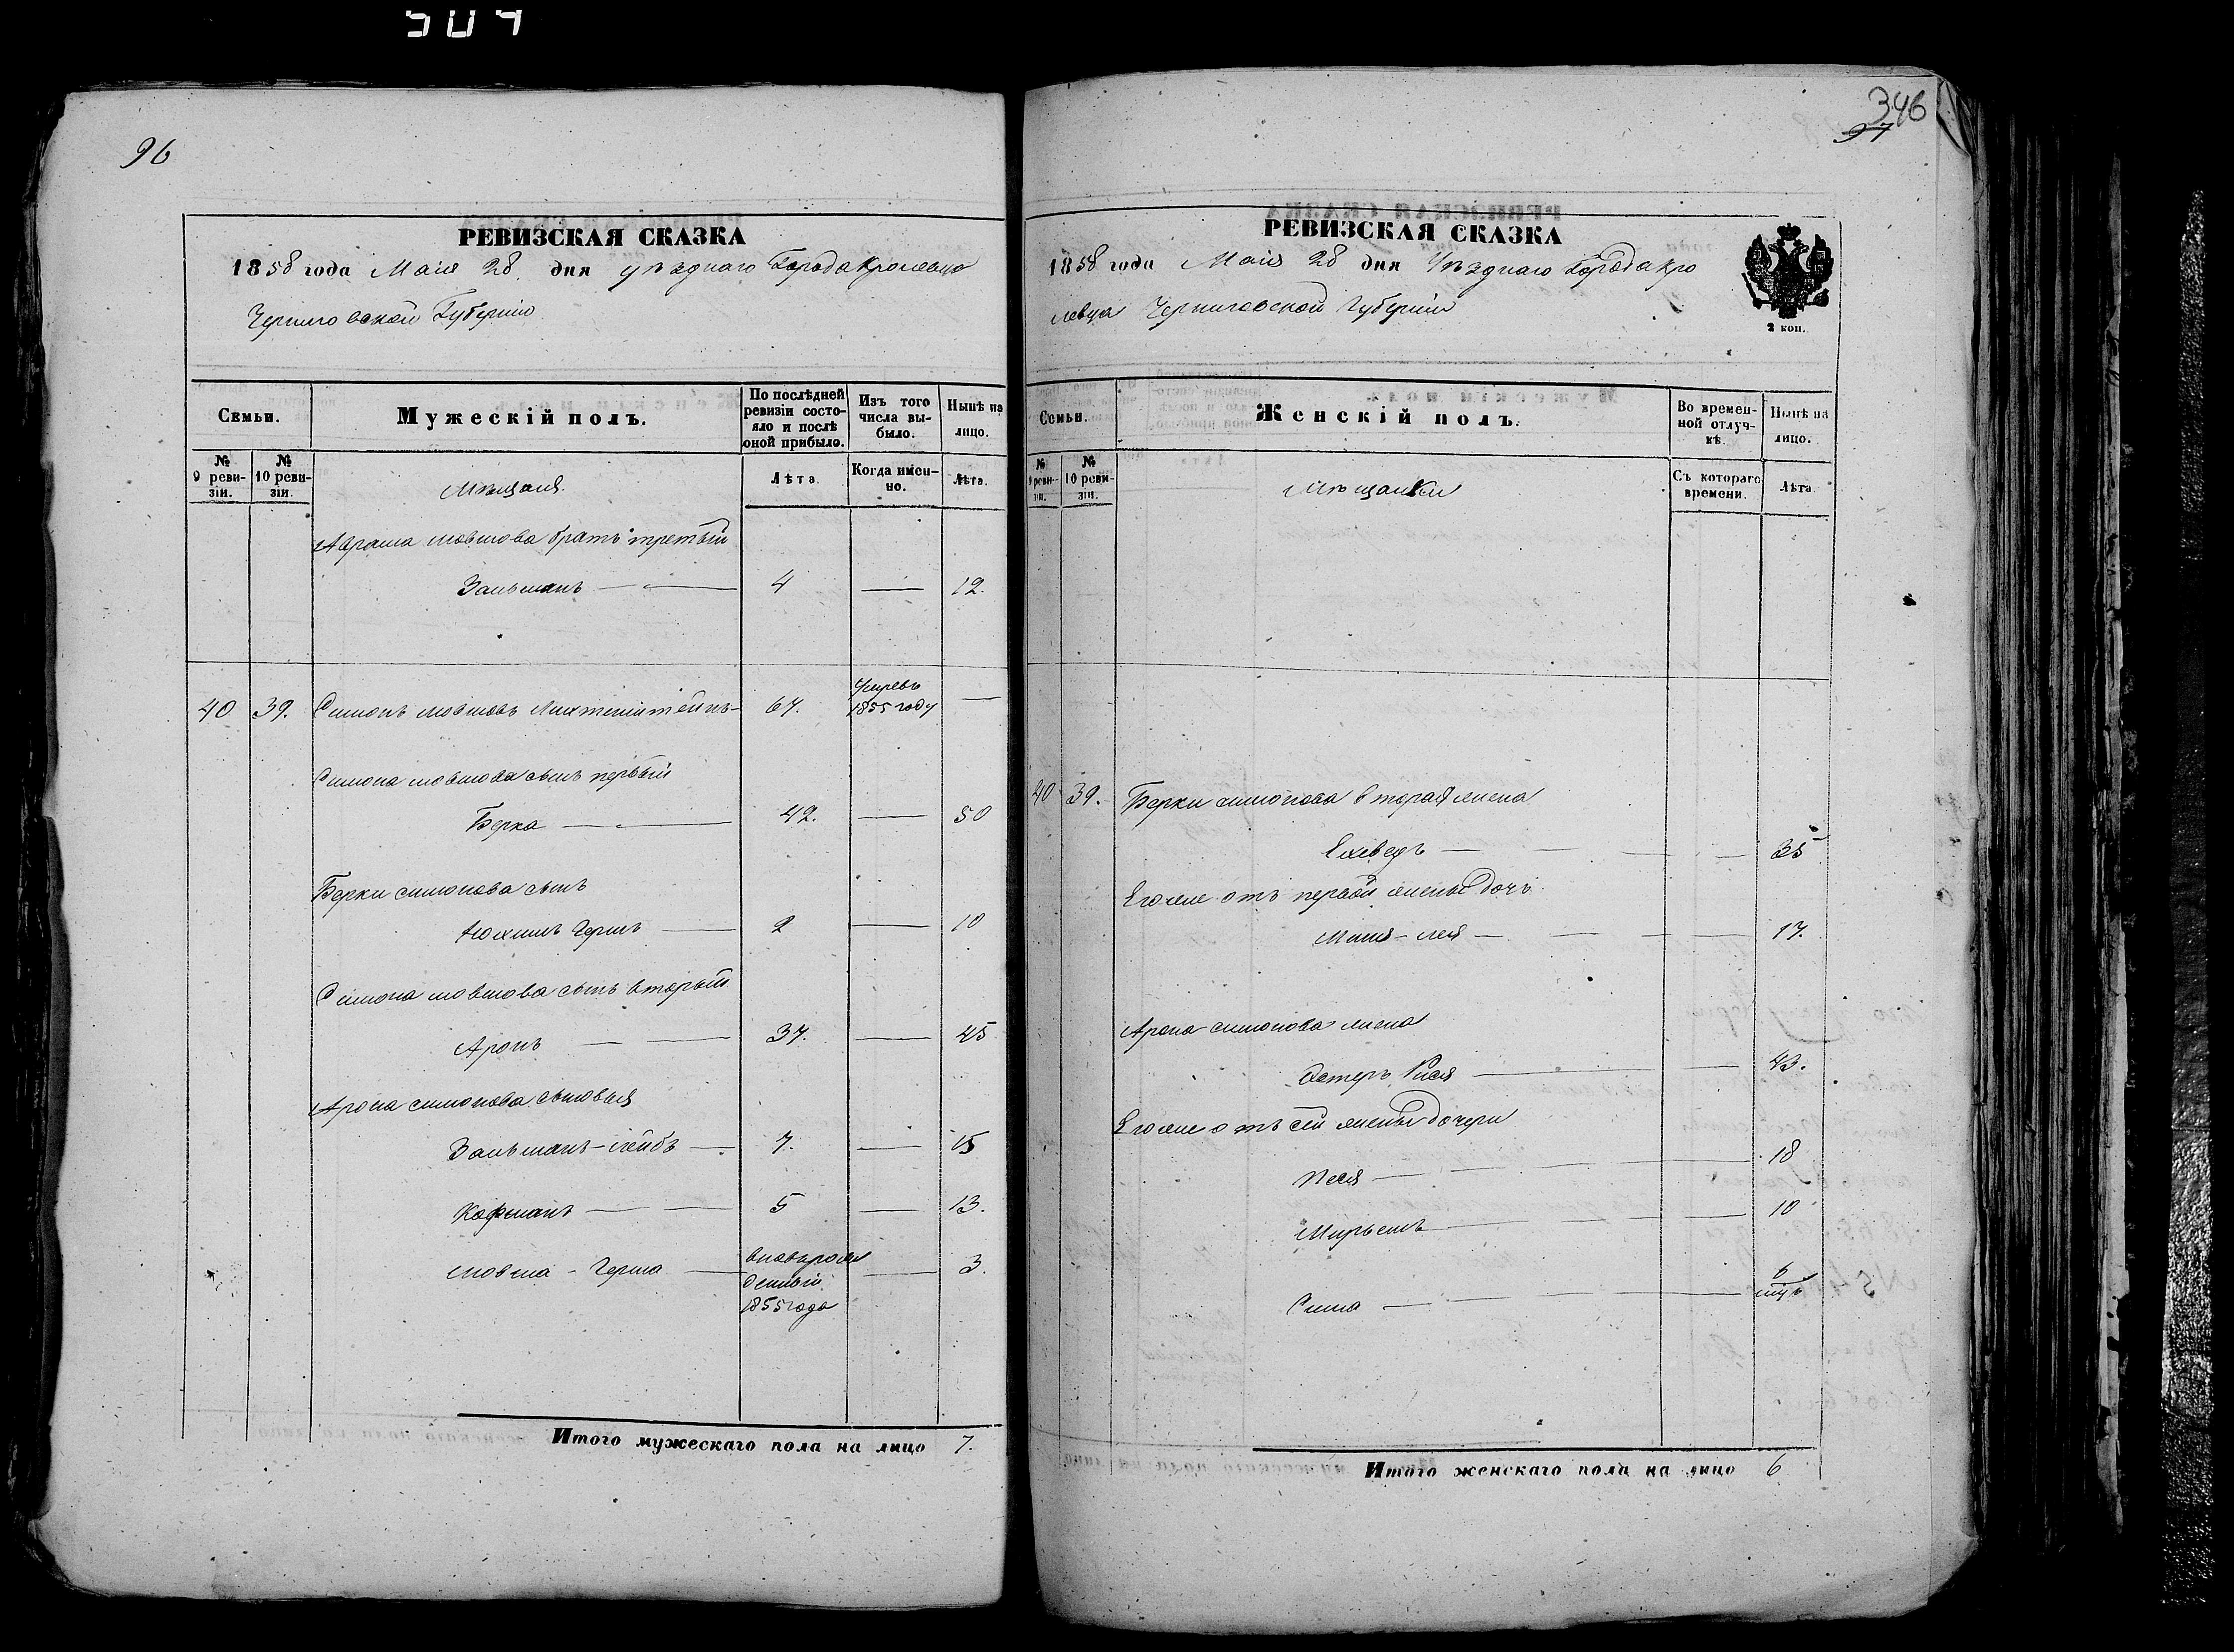 504
96
РЕВИЗСКАЯ СКАЗКА
1858 года Маія 28 дня уѣзднаго Города Кролевца
Черниговской Губерніи
Семьи.
Мужескій полъ.
По послѣдней ревизіи состояло и послѣ оной прибыло.
Изъ того числа выбыло.
Нынѣ на лицо.
№ 9 ревизіи.
№ 10 ревизіи.
Мѣщаня.
Лѣта.
Когда именно.
Лѣта.
Абрама мовшова братъ третьій
Зальманъ — 4 — 12.
40 39. Симонъ мовшовъ Лихтенштейнъ — 67. Умревъ 1855 году —
Симона мовшова сынъ первый
Берка — 42. — 50
Берки симонова сынъ
Герша — 2 — 10
Симона мовшова сынъ вторый
Аронъ — 37. — 45
Арона симонова сыновья
Зальманъ-лейбъ — 7. — 15
Кофманъ — 5 — 13.
мовша - Герша — вновьрожденный 1855 года — 3.
Итого мужескаго пола на лицо 7.
346
97
РЕВИЗСКАЯ СКАЗКА
1858 года Маія 28 дня Уѣзднаго Города Кро
левца Черниговской Губерніи
2 коп.
Семьи.
Женскій полъ.
Во временной отлучкѣ.
Нынѣ на лицо.
№ 9 ревизіи.
№ 10 ревизіи.
Мѣщанки
Съ котораго времени.
Лѣта.
40 39. Берки симонова вторая жена
Ехеведъ — 35
Егоже отъ первой жены дочь
Лея — 17.
Арона симонова жена
Естеръ Рися — 43.
Егоже отъ сей жены дочери
Песя — 18
Мирьемъ — 10
Сима — 6
Итого женскаго пола на лицо 6